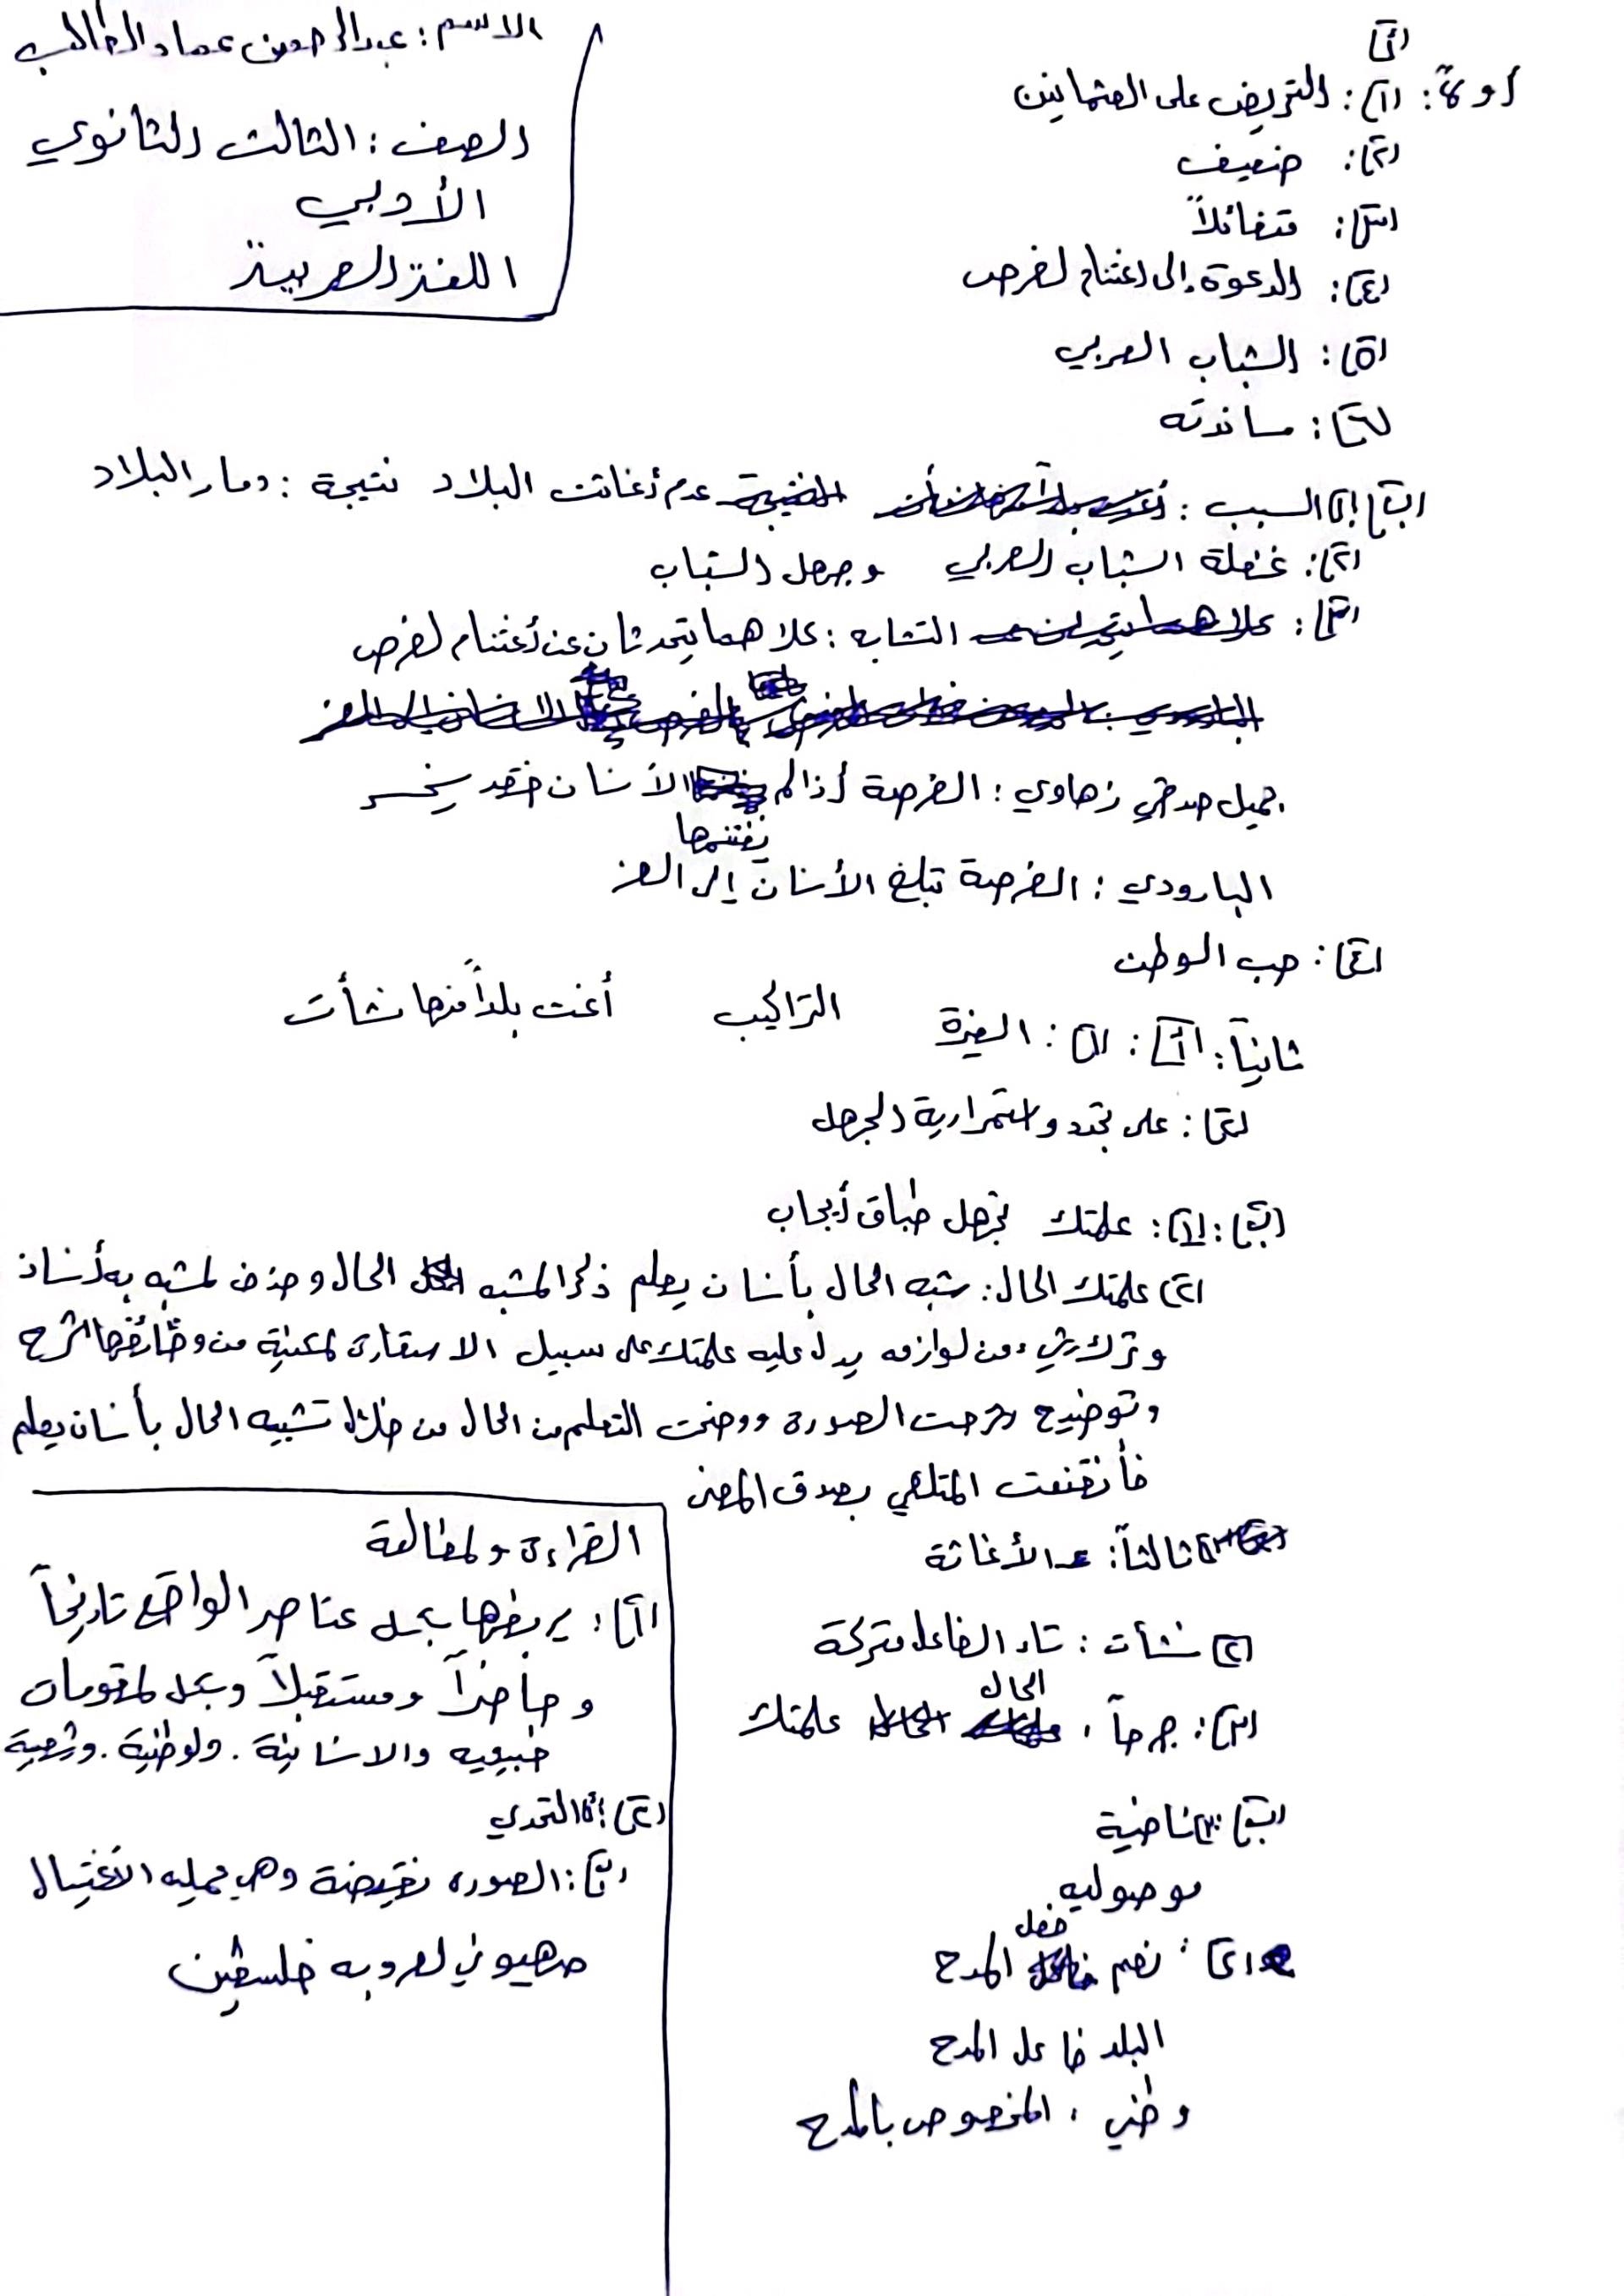 الاسم : عبدالرحمن عماد الطالب
الصف : الثالث الثانوي
الأدبي
اللغة العربية
(أ)
أولاً : (١) : التحريض على العثمانيين
(٢) : ضعيف
(٣) : متفائلاً
(٤) : الدعوة إلى اغتنام لفرص
(٥) : الشباب العربي
(٦) : ساندته
(ب) (١) السبب : عدم أغاثت البلاد نتيجة : دمار البلاد
(٢) : غفلة الشباب العربي وجهل الشباب
(٣) : التشابه : كلاهما يتحدثان عن أغتنام لفرص
جميل صدقي زهاوي : الفرصة أذا لم يغتنمها الأنسان فقد يخسر
البارودي : الفرصة تبلغ الأنسان إلى العز
(٤) : حب الوطن
ثانياً : (أ) : (١) : الغيرة التراكيب أغث بلداً منها نشأت
(٢) : على تجدد واستمرارية الجهل
(ب) : (١) : علمتك تجهل طباق أيجاب
(٢) علمتك الحال : شبه الحال بأنسان يعلم ذكر المشبه الحال وحذف لمشبه به أنسان
وترك شيء من لوازمه يدل عليه علمتك على سبيل الاستعارة لمكنية من وظائفها شرح
وتوضيح شرحت الصورة ووضحت التعلم من الحال من خلال تشبيه الحال بأنسان يعلم
فأنقنعت المتلقي بصدق المعنى
ثالثاً : الأغاثة
(٢) نشأت : تاء الفاعل متحركة
(٣) : جرحاً ، الحال علمتك
(ب) : (١) ناضية
موصوليه
(٢) : نعم فعل المدح
البلد فاعل المدح
وطني ، المخصوص بالمدح
القراءة ولمطالعة
(١) : يربطها بكل عناصر الواقع تاريخاً
وحاضراً ومستقبلاً وبكل لمقومات
طبيعيه والانسانية . ولوطنية . وشعبية
(٢) : أ التحدي
(ب) : الصوره نقيضة وهي عمليه الأغتيال
صهيوني لعروبه فلسطين